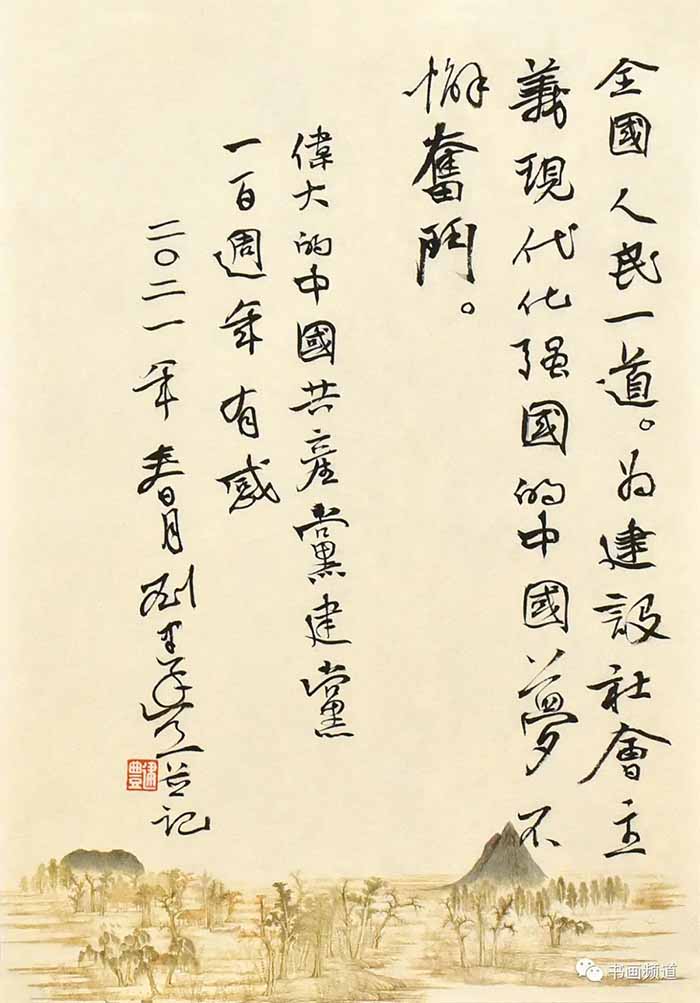 全國人民一道。为建設社會主
義現代化强國的中國夢不
懈奮鬥。
偉大的中國共産黨建黨
一百週年有感
二〇二一年春月刘并记
书画频道